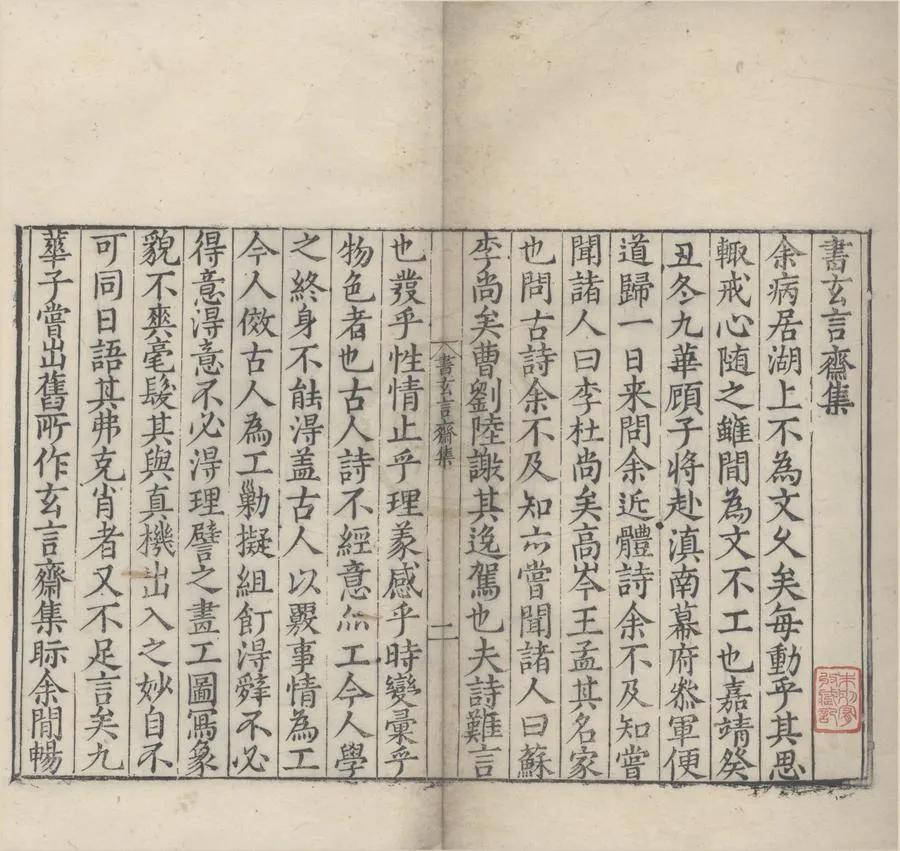 書玄言齋集
余病居湖上不為文乆矣每動乎其思
輙戒心随之雖間為文不工也嘉靖癸
丑冬九華顧子將赴滇南幕府叅軍便
道歸一日来問余近體詩余不及知嘗
聞諸人曰李杜尚矣高岑王孟其名家
也問古詩余不及知亦嘗聞諸人曰蘇
李尚矣曹劉陸謝其逸駕也夫詩難言
書玄言齋集
二
也發乎性情止乎理義感乎時變彚乎
物色者也古人詩不經意而工今人學
之終身不能得盖古人以覈事情為工
今人傚古人為工勦擬組飣得辤不必
得意得意不必得理譬之畫工圖寫象
貌不爽毫髮其與真機出入之妙自不
可同日語其弗克肖者又不足言矣九
華子嘗出舊所作玄言齋集眎余閒暢